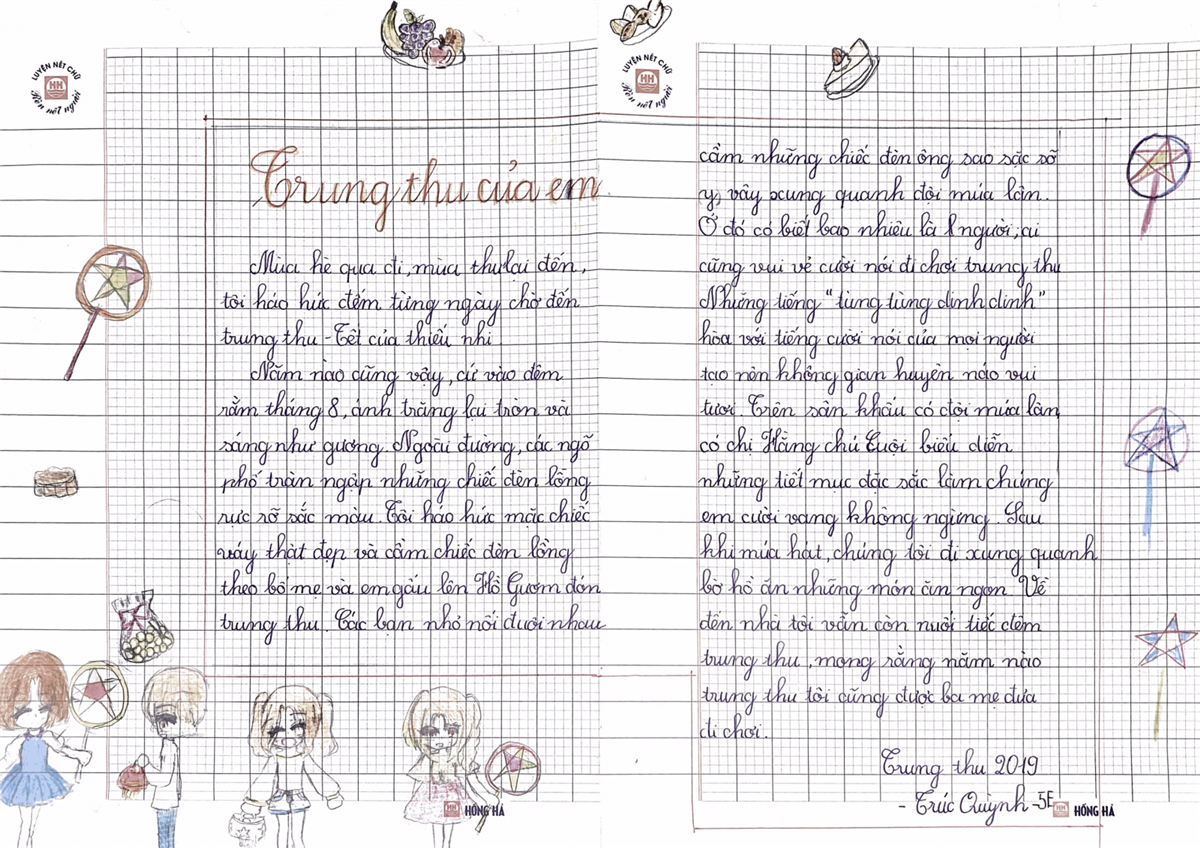 LUYỆN NÉT CHỮ
Rèn nết người
HH
Trung thu của em
Mùa hè qua đi, mùa thu lại đến,
tôi háo hức đếm từng ngày chờ đến
trung thu - Tết của thiếu nhi
Năm nào cũng vậy, cứ vào đêm
rằm tháng 8, ánh trăng lại tròn và
sáng như gương. Ngoài đường, các ngõ
phố tràn ngập những chiếc đèn lồng
rực rỡ sắc màu. Tôi háo hức mặc chiếc
váy thật đẹp và cầm chiếc đèn lồng
theo bố mẹ và em gấu lên Hồ Gươm đón
trung thu. Các bạn nhỏ nối đuôi nhau
HH HỒNG HÀ
LUYỆN NÉT CHỮ
Rèn nết người
HH
cầm những chiếc đèn ông sao sặc sỡ
vây xung quanh đội múa lân.
Ở đó có biết bao nhiêu là người; ai
cũng vui vẻ cười nói đi chơi trung thu
Những tiếng "tùng tùng dinh dinh"
hòa với tiếng cười nói của mọi người
tạo nên không gian huyên náo vui
tươi. Trên sân khấu có đội múa lân,
có chị Hằng chú Cuội biểu diễn
những tiết mục đặc sắc làm chúng
em cười vang không ngừng. Sau
khi múa hát, chúng tôi đi xung quanh
bờ hồ ăn những món ăn ngon. Về
đến nhà tôi vẫn còn nuối tiếc đêm
trung thu, mong rằng năm nào
trung thu tôi cũng được ba mẹ đưa
đi chơi.
Trung thu 2019
- Trúc Quỳnh - 5E
HH HỒNG HÀ